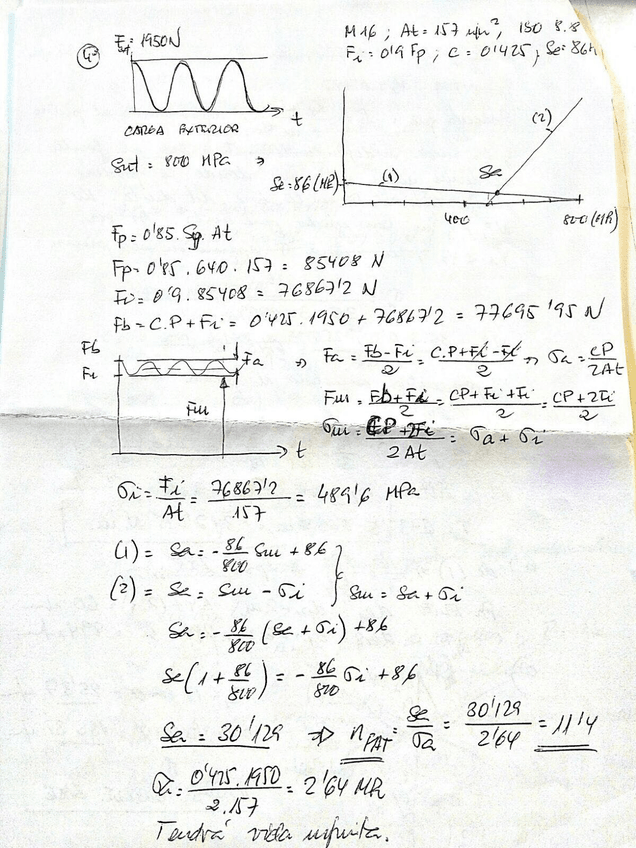 4º
Fext = 1950N
M16 ; At = 157 mm², ISO 8.8
Fi = 0'9 Fp ; C = 0'425 ; Se = 86 M
t
CARGA EXTERIOR
Sut = 800 MPa ⇒
Se = 86 (MPa)
(1)
Sa
(2)
400
800 (MPa)
Fp = 0'85 . Sy . At
Fp = 0'85 . 640 . 157 = 85408 N
Fi = 0'9 . 85408 = 76867'2 N
Fb = C.P + Fi = 0'425 . 1950 + 76867'2 = 77695'95 N
Fb
Fi
Fa
Fm
t
⇒ Fa = Fb - Fi / 2 = C.P + Fi - Fi / 2 ⇒ σa = CP / 2At
Fm = Fb + Fi / 2 = CP + Fi + Fi / 2 = CP + 2Fi / 2
σm = CP + 2Fi / 2At = σa + σi
σi = Fi / At = 76867'2 / 157 = 489'6 MPa
(1) = Sa = - 86/800 Sm + 86
(2) = Sa = Sm - σi } Sm = Sa + σi
Sa = - 86/800 (Sa + σi) + 86
Sa (1 + 86/800) = - 86/800 σi + 86
Sa = 30'129 ⇒ nFAT = Sa / σa = 30'129 / 2'64 = 11'4
σa = 0'425 . 1950 / 2 . 157 = 2'64 MPa
Tendrá vida infinita.